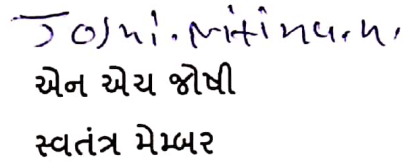 Joshi. Nitina. n.
એન એચ જોષી
સ્વતંત્ર મેમ્બર